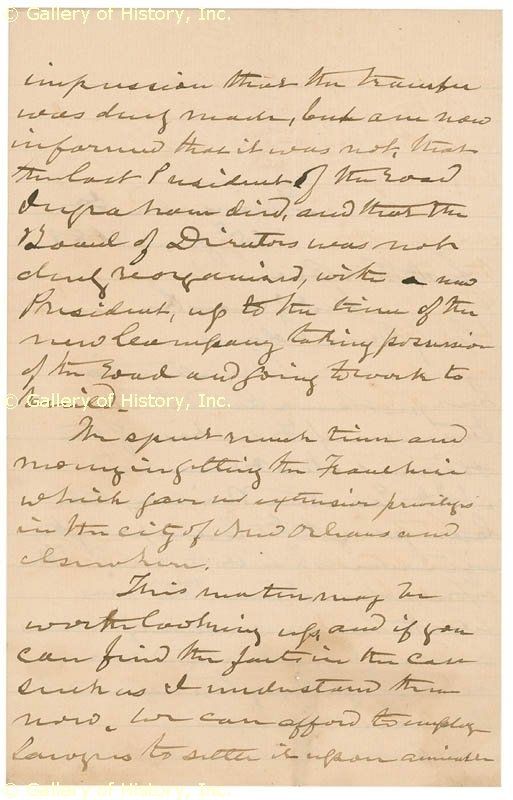 © Gallery of History, Inc.
impression that the transfer
was duly made, but am now
informed that it was not, that
the last President of the Road
Ingraham died, and that the
Board of Directors was not
duly reorganized, with a new
President, up to the time of the
new Company taking possession
of the Road and going to work to
build.
© Gallery of History, Inc.
We spent much time and
money in getting the Franchise
which gave us extensive privileges
in the city of New Orleans and
elsewhere.
© Gallery of History, Inc.
This matter may be
worth looking up, and if you
can find the facts in the case
such as I understand them
now, we can afford to employ
lawyers to settle it upon amicable
© Gallery of History, Inc.